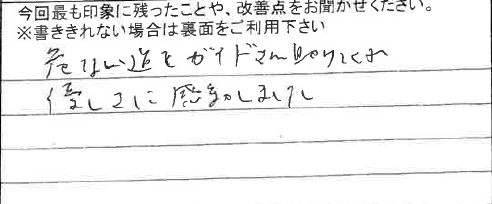 今回最も印象に残ったことや、改善点をお聞かせください。
※書ききれない場合は裏面をご利用下さい
危ない道をガイドさん助けてくれ
優しさに感動しました